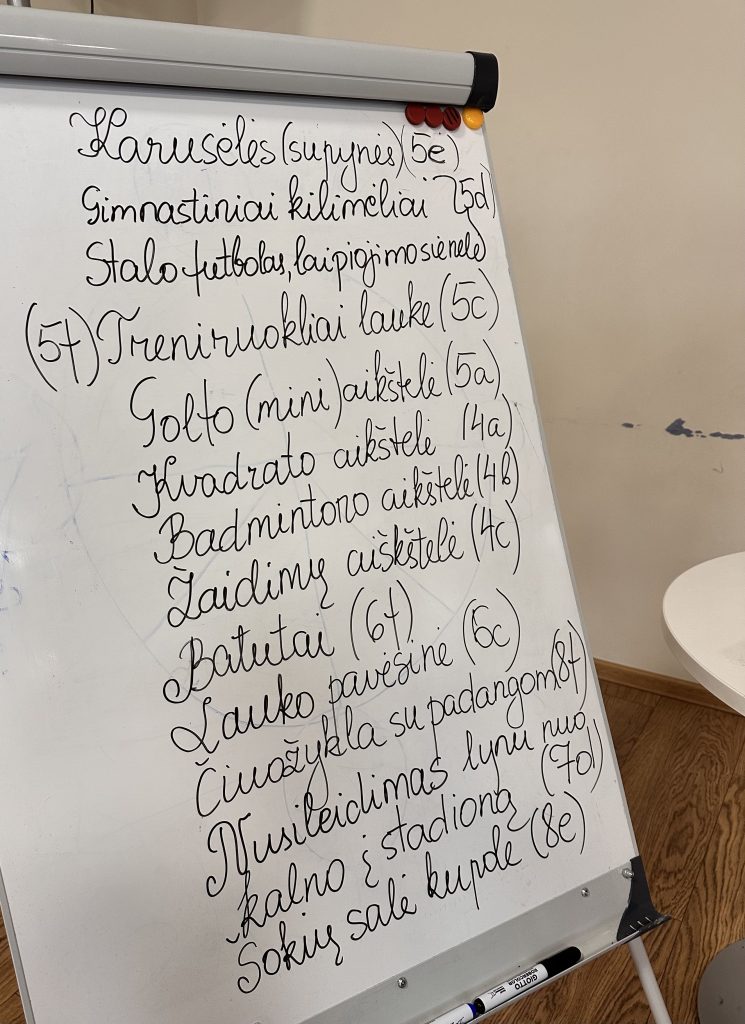 Karusėlės (supynės) (5ė)
Gimnastiniai kilimėliai (5d)
Stalo futbolas, laipiojimo sienelė
(5f) Treniruokliai lauke (5c)
Golfo (mini) aikštelė (5a)
Kvadrato aikštelė (4a)
Badmintono aikštelė (4b)
Žaidimų aiškštelė (4c)
Batutai (6f)
Lauko pavėsinė (6c)
Čiuožykla su padangom (8f)
Nusileidimas lynu nuo
kalno į stadioną (7d)
Šokių salė kupole (8e)
GIOTTO
ROBERCOLOR